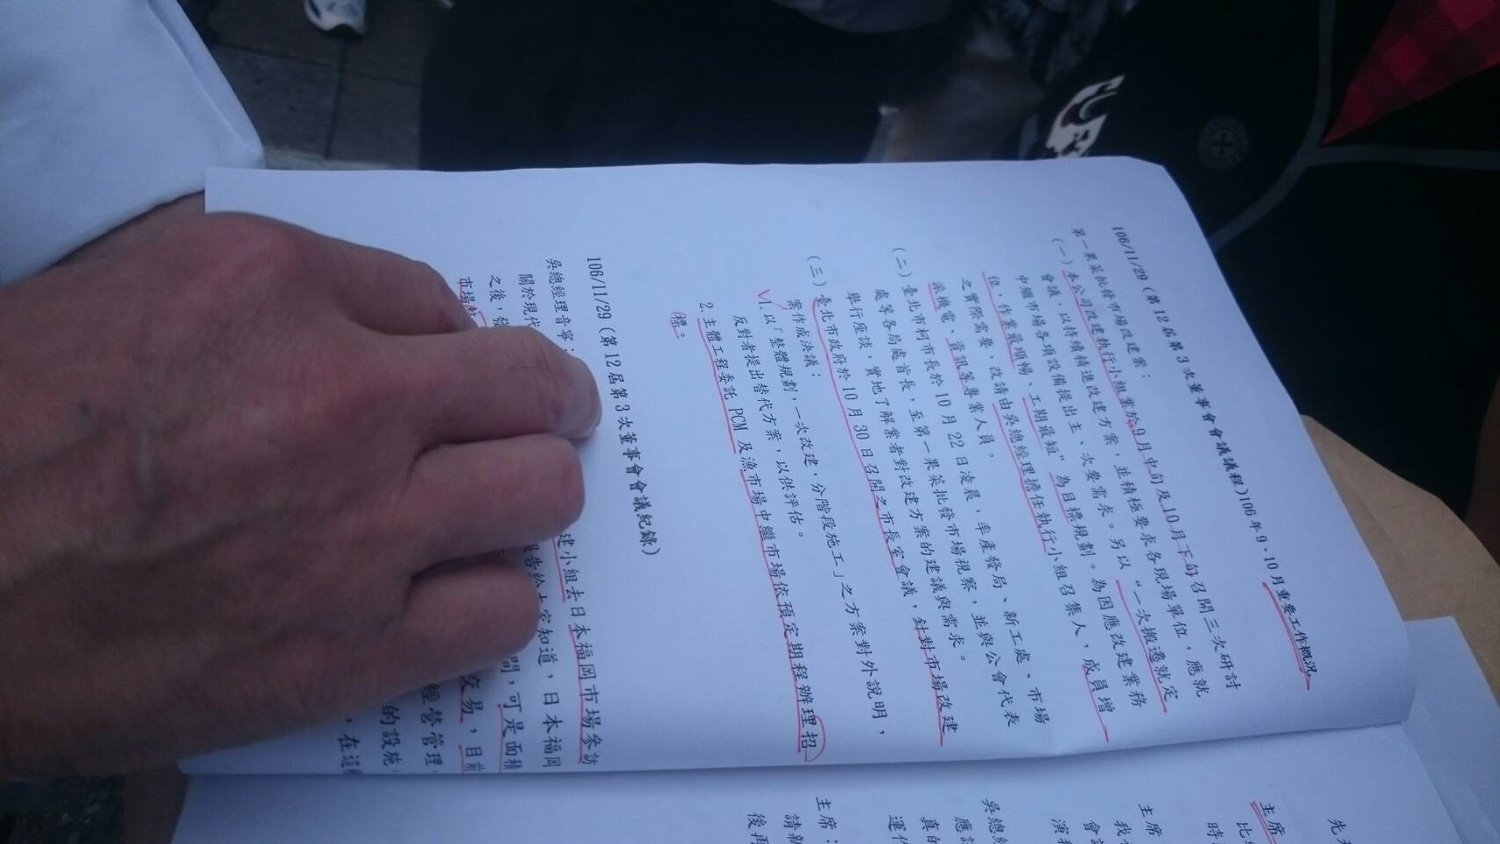 106/11/29（第12屆第3次董事會會議議程)106年9、10月重要工作概況
第一果菜批發市場改建案：
(一)本公司改建執行小組業於9月中旬及10月下旬召開三次研討
會議，以持續精進改建方案，並積極要求各現場單位，應就
中繼市場各項設備提出主、次要需求。另以"一次搬遷就定
位，作業最順暢、工期最短"為目標規劃。為因應改建業務
之實際需要，改請由吳總經理擔任執行小組召集人，成員增
派機電、資訊等專業人員。
(二)臺北市柯市長於10月22日凌晨，率產發局、新工處、市場
處等各局處首長，至第一果菜批發市場視察，並與公會代表
舉行座談，實地了解業者對改建方案的建議與需求。
(三)臺北市政府於10月30日召開之市長室會議，針對市場改建
案作成決議：
1.以「整體規劃，一次改建，分階段施工」之方案對外說明，
反對者提出替代方案，以供評估。
2.主體工程委託PCM及漁市場中繼市場依預定期程辦理招
標。
106/11/29（第12屆第3次董事會會議紀錄）
吳總經理音寧：
建小組去日本福岡市場參訪
關於現代
報告給大家知道，日本福岡
之後，
門，可是面積
市場
交易，目前
經營管理
的設施
，在這
先
主席
比
時
主席
我
會
演
吳總
應
真的
運作
主席：
請
後再